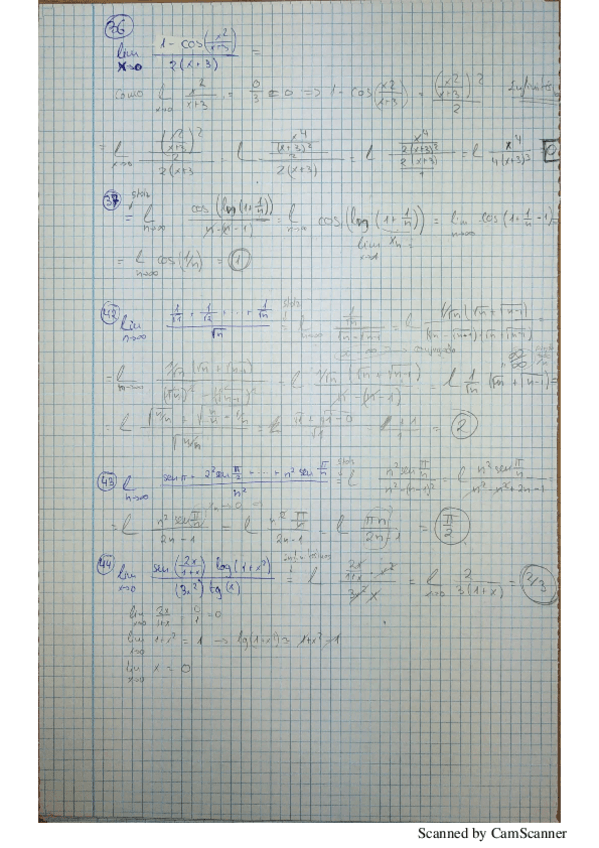 36
lim x→0 (1 - cos(x²/(x+3))) / (2(x+3)) =
Como l x→0 x²/(x+3) = 0/3 = 0 => 1 - cos(x²/(x+3)) = (x²/(x+3))² / 2
= l x→0 ((x²/(x+3))² / 2) / (2(x+3)) = l ((x⁴/(x+3)²) / 2) / (2(x+3)) = l (x⁴/(2(x+3)²)) / (2(x+3)/1) = l x⁴/(4(x+3)³) = 0
37 stolz
= l n→∞ cos(log(1+1/n)) / (n-(n-1)) = l n→∞ cos(log(1+1/n)) = lim n→∞ cos(1+1/n-1) =
= l n→∞ cos(1/n) = 1
42 lim n→∞ (1/√1 + 1/√2 + ... + 1/√n) / √n = stolz l n→∞ (1/√n) / (√n - √n-1) = l 1/√n (√n + √n-1) / (√n - √n-1)(√n + √n-1) =
= l n→∞ 1/√n (√n + √n-1) / ((√n)² - (√n-1)²) = l 1/√n (√n + √n-1) / (n - (n-1)) = l 1/√n (√n + √n-1) =
= 2
43 l n→∞ (sen π + 2² sen π/2 + ... + n² sen π/n) / n² = stolz l n² sen π/n / (n² - (n-1)²) = l n² sen π/n / (n² - n² + 2n - 1) =
= l n² sen π/n / (2n-1) = l n² π/n / (2n-1) = l πn / (2n-1) = π/2
44 lim x→0 sen(2x/(1+x)) log(1+x²) / ((3x²) tg(x)) = l (2x/(1+x) · x²) / (3x² x) = l x→0 2/(3(1+x)) = 2/3
lim x→0 2x/(1+x) = 0/1 = 0
lim x→0 1+x² = 1 → lg(1+x²) = 1+x²-1
lim x→0 x = 0
Scanned by CamScanner